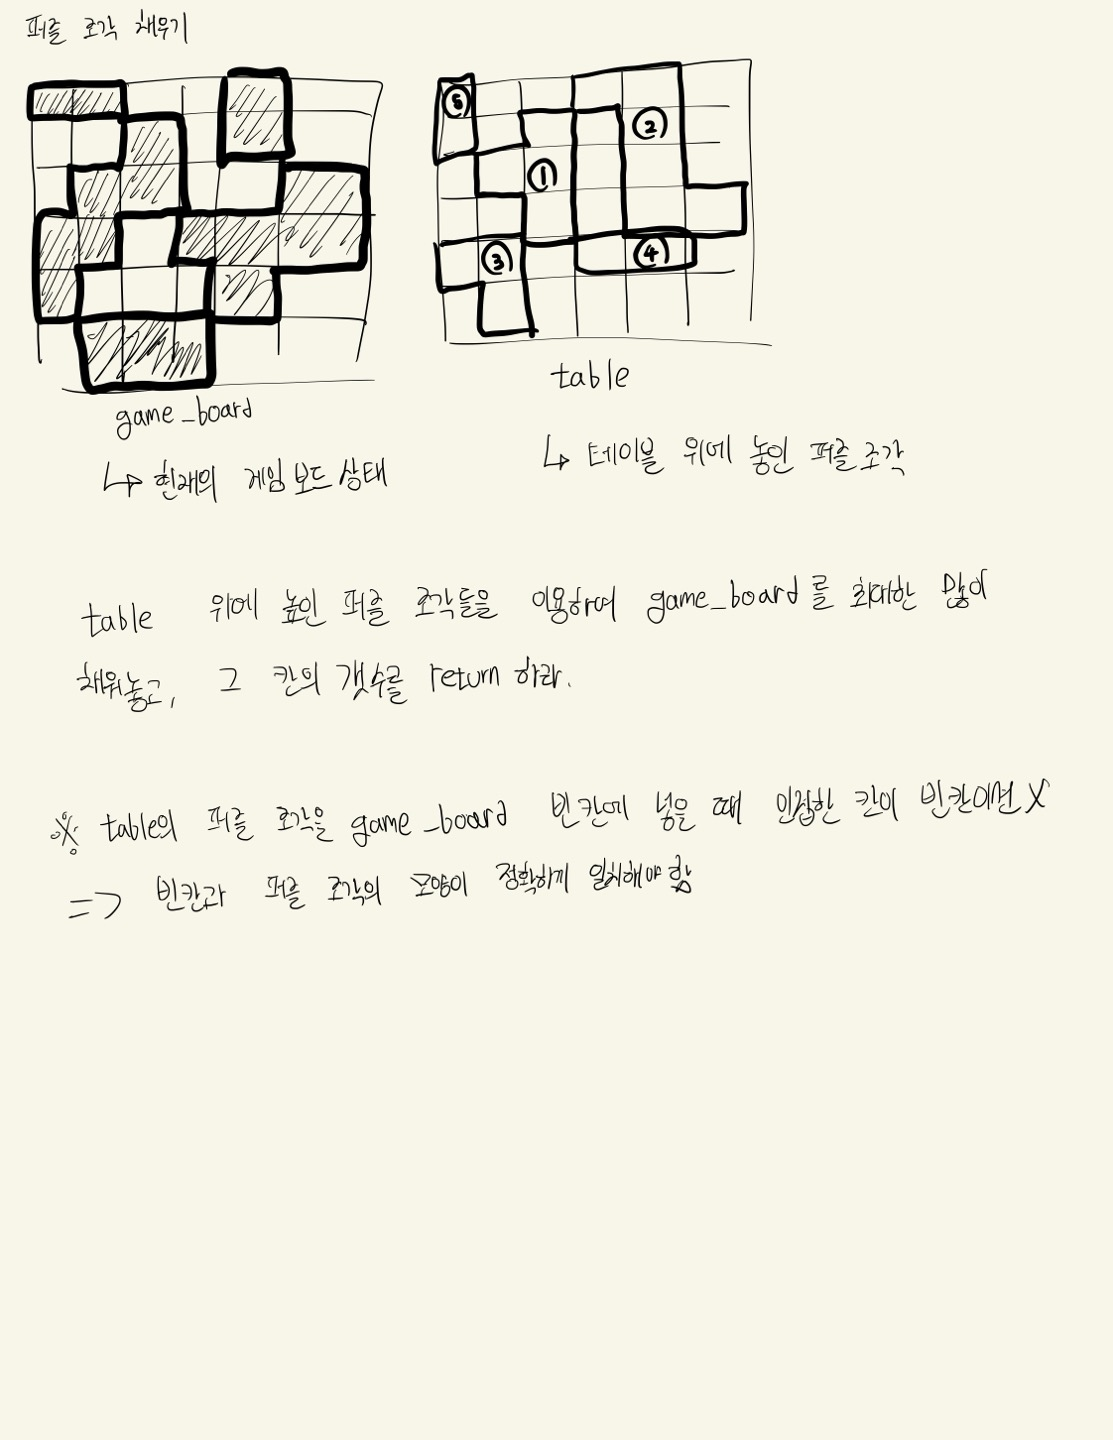 퍼즐 조각 채우기
⑤
②
①
③
④
table
game_board
↳ 현재의 게임 보드 상태
↳ 테이블 위에 놓인 퍼즐 조각
table 위에 높인 퍼즐 조각들을 이용하여 game_board를 최대한 많이
채워놓고, 그 칸의 갯수를 return 하라.
※ table의 퍼즐 조각을 game_board 빈칸에 넣을 때 인접한 칸이 빈칸이면 X
=> 빈칸과 퍼즐 조각의 모양이 정확하게 일치해야 함